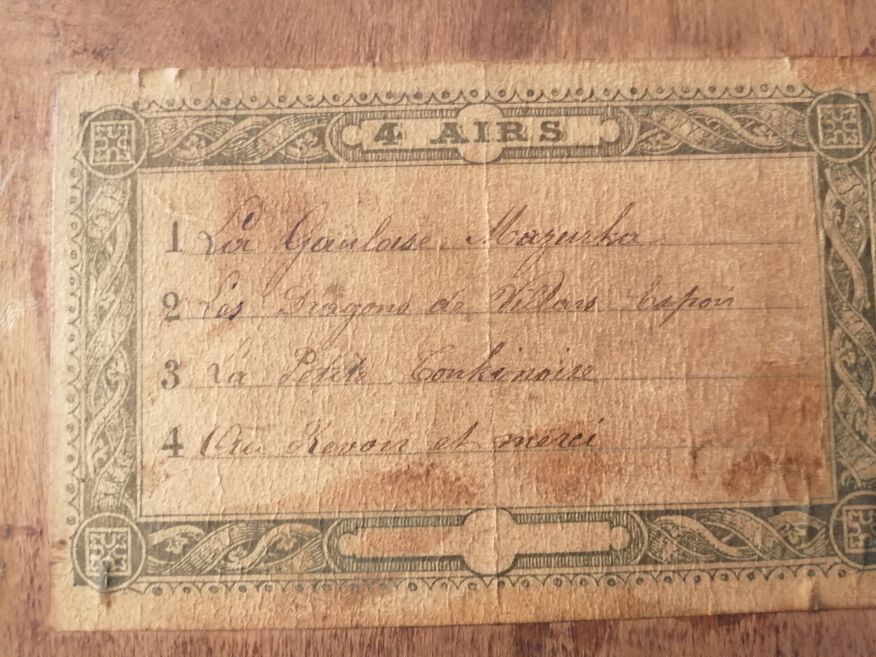 4 AIRS
1 La Gauloise Mazurka
2 Les Dragons de Villars Espoir
3 La Petite Tonkinoise
4 Au Revoir et merci